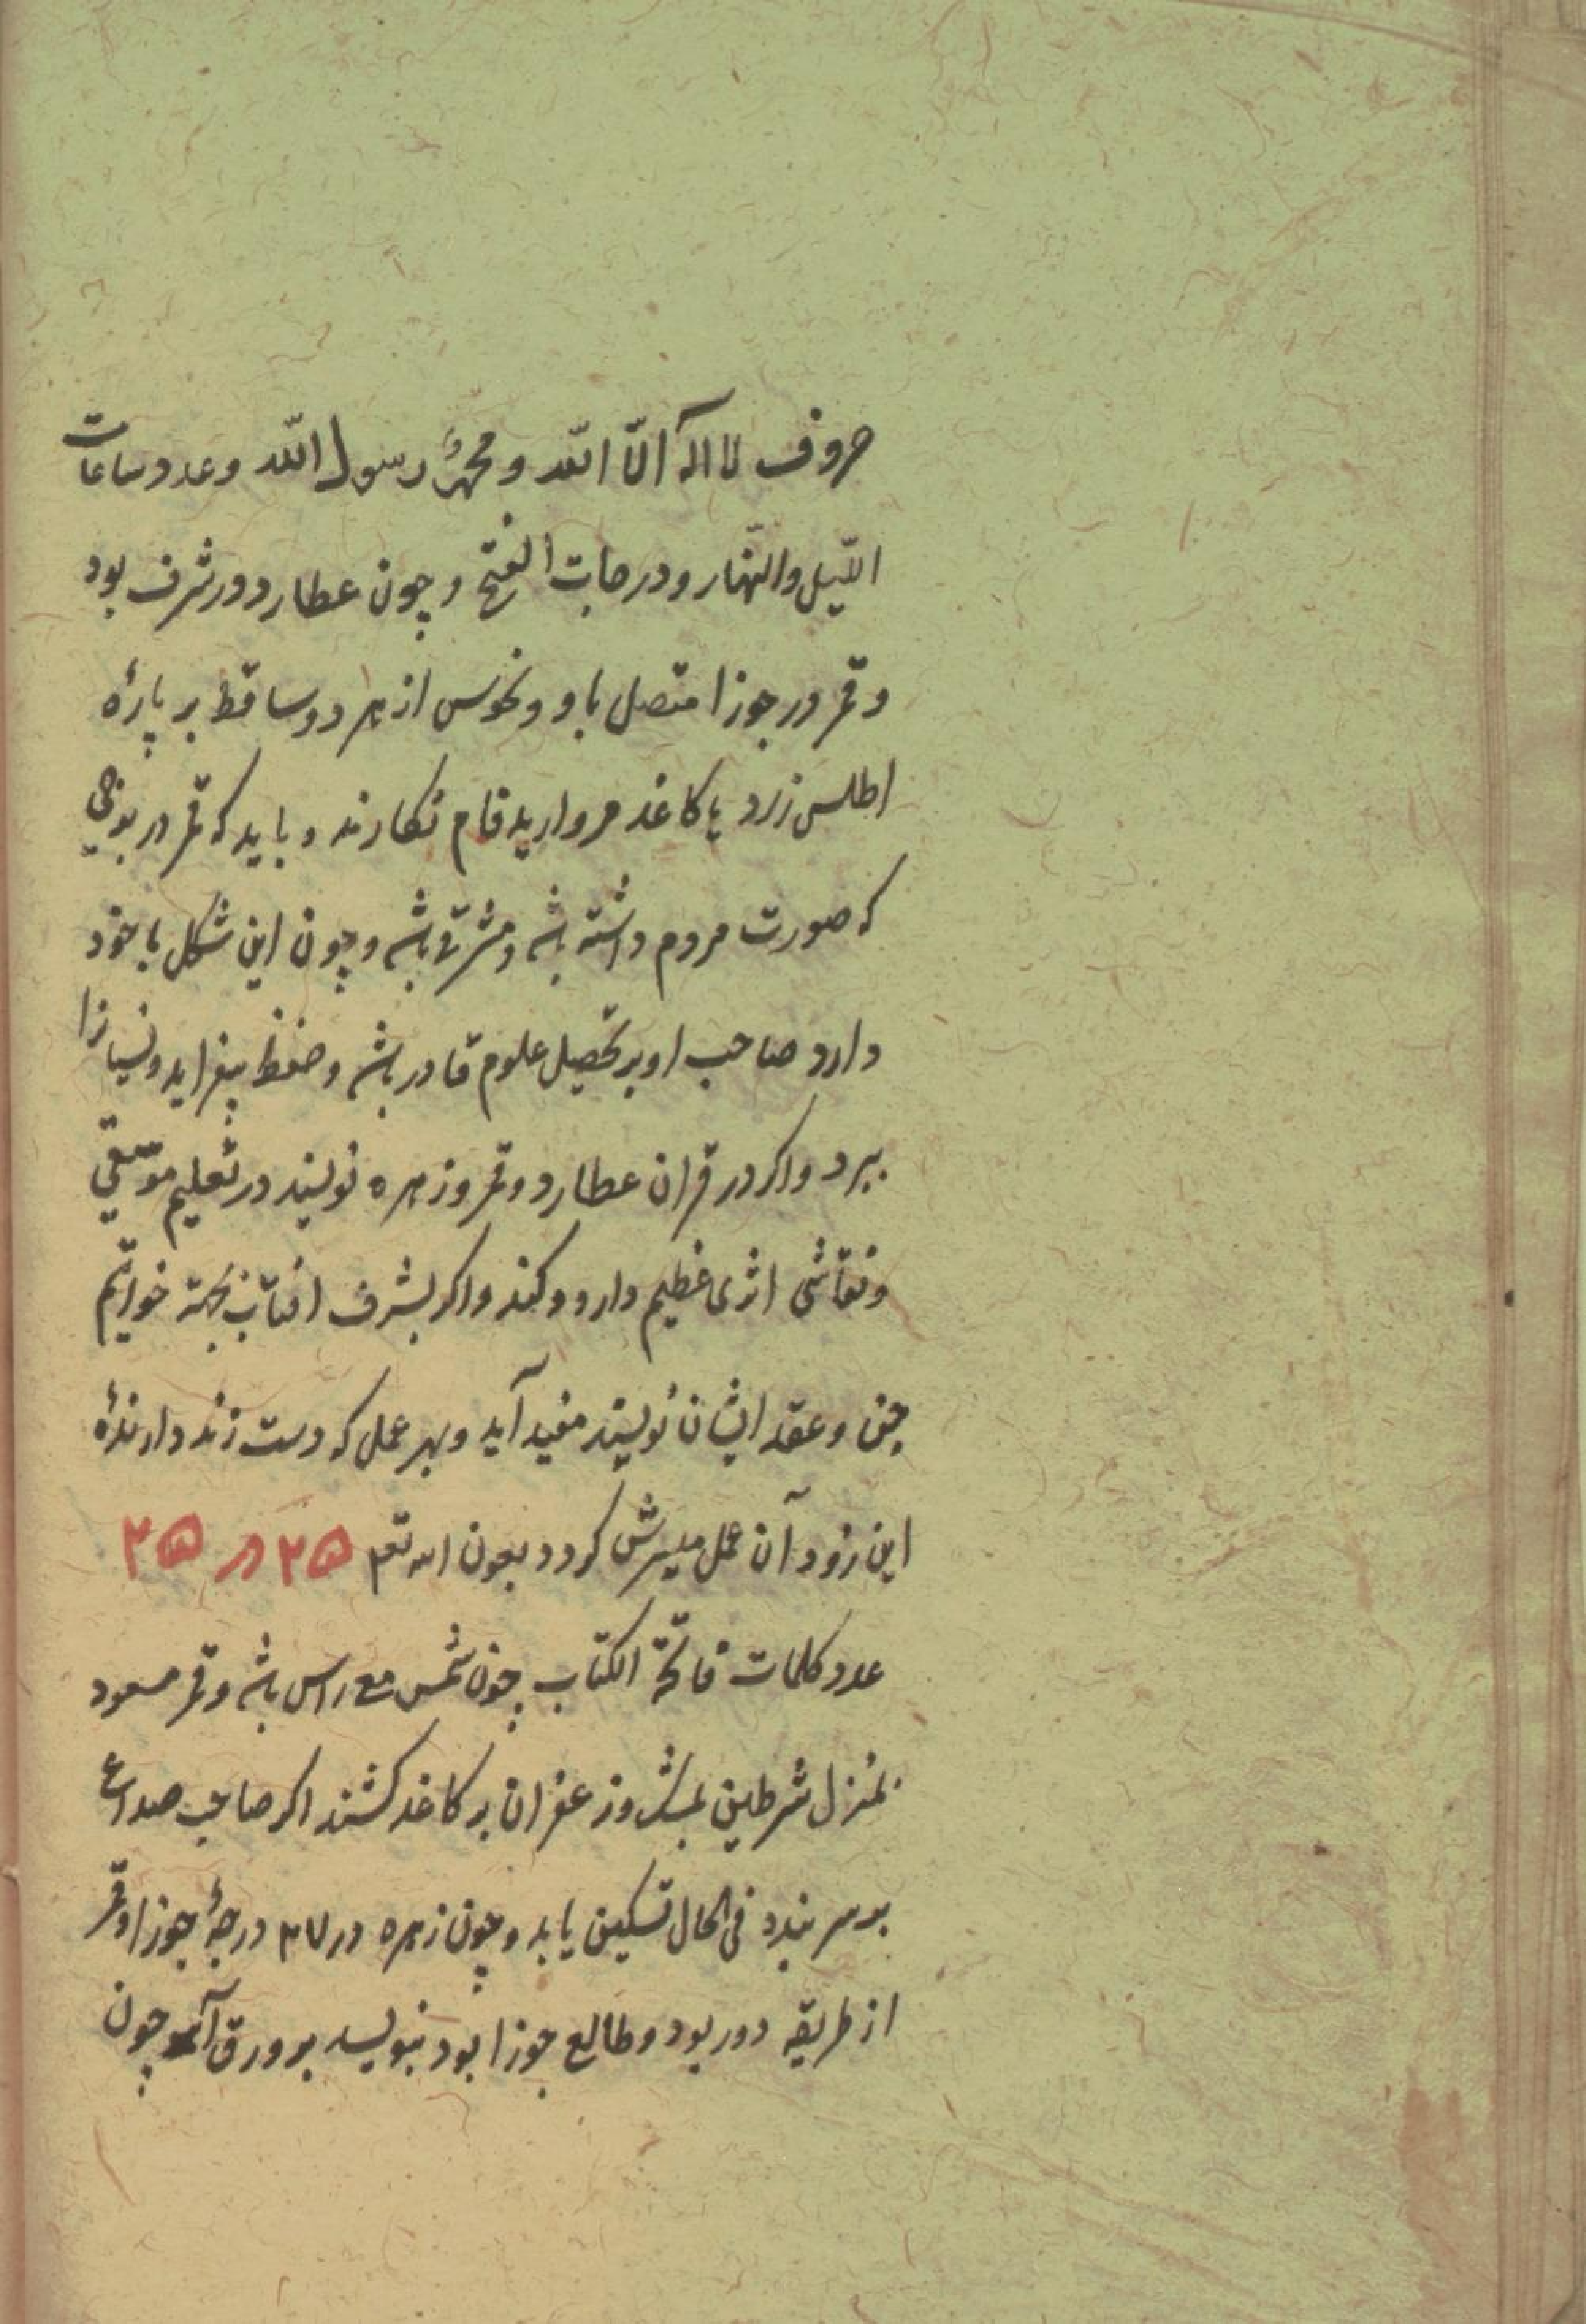 حروف لا اله الّا اللّه و محمّدٌ رسول اللّه و عدد ساعات
اللّیل والنّهار و درجات الفتح و چون عطارد در شرف بود
و قمر در جوزا متصل باو و نحوس از هر دو ساقط بر پارهٔ
اطلس زرد یا کاغذ مروارید فام نکارند و باید که قمر در برجی
که صورت مردم داشته باشد و مشرقی باشد و چون این شکل با خود
دارد صاحب او بر تحصیل علوم قادر باشد و حفظ بیفزاید و نسیانرا
ببرد و اکر در قران عطارد و قمر و زهره نویسند در تعلیم موسیقی
و نقاشی اثری عظیم دارد و کند و اکر بشرف افتاب بجهة خواتیم
جن و عقد ایشان نویسند مفید آید و بهر عمل که دست زند دارندهٔ
این زود آن عمل میسرش کردد بعون الله تعم ۲۵ در ۲۵
عدد کلمات فاتحة الکتاب چون شمس مع راس باشد و قمر مسعود
بمنزل شرطین بمشک و زعفران بر کاغذ کشند اکر صاحب صداع
بر سر بندد فی الحال تسکین یابد و چون زهره در ۲۷ درجهٔ جوزا و قمر
از طریقه دور بود و طالع جوزا بود بنویسد بر ورق آهو چون